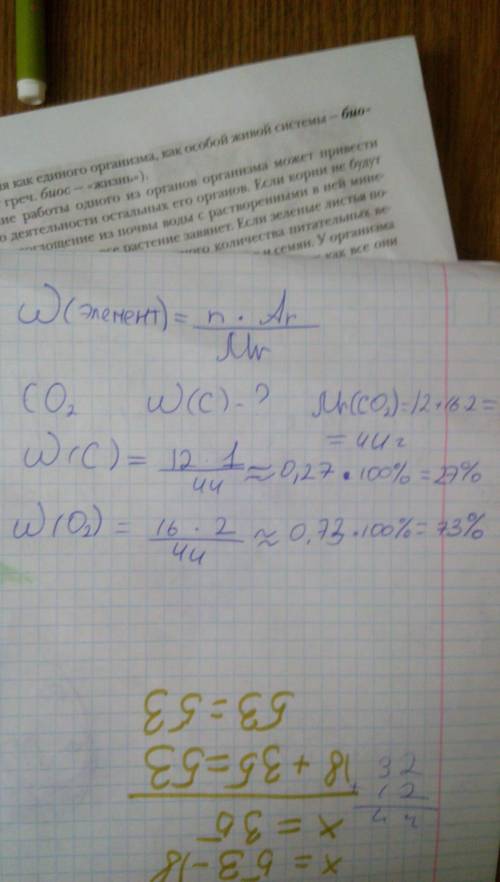 ия как единого организма, как особой живой системы – био-
греч. биос – «жизнь»).
ие работы одного из органов организма может привести
о деятельности остальных его органов. Если корни не будут
оглощение из почвы воды с растворенными в ней мине-
все растение завянет. Если зеленые листья по-
ного количества питательных ве-
и семян. У организма
как все они
W(элемент) = n · Ar
Mr
CO2 W(C) - ? Mr(CO2)=12+16·2=
= 44 г
W(C) = 12 · 1
44 ≈ 0,27 · 100% = 27%
W(O2) = 16 · 2
44 ≈ 0,73 · 100% = 73%
32
+ 12
44
x = 53-18
x = 35
18 + 35 = 53
53 = 53